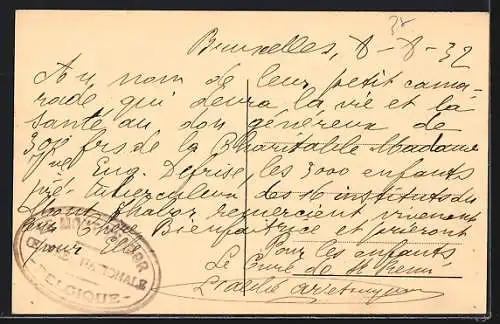 Bruxelles, 8-8-32
Au nom de leur petit cama-
rade qui devra la vie et la
santé au don généreux de
300 frs de la Charitable Madame
Vve Eug. Defrise, les 3000 enfants
pré-tuberculeux des 16 instituts du
Mont Thabor remercient vivement
leur Bienfaitrice et prieront
pour Elle.
Pour les enfants
Le Curé de St Remi
L'abbé
MONT THABOR
ŒUVRE NATIONALE
BELGIQUE